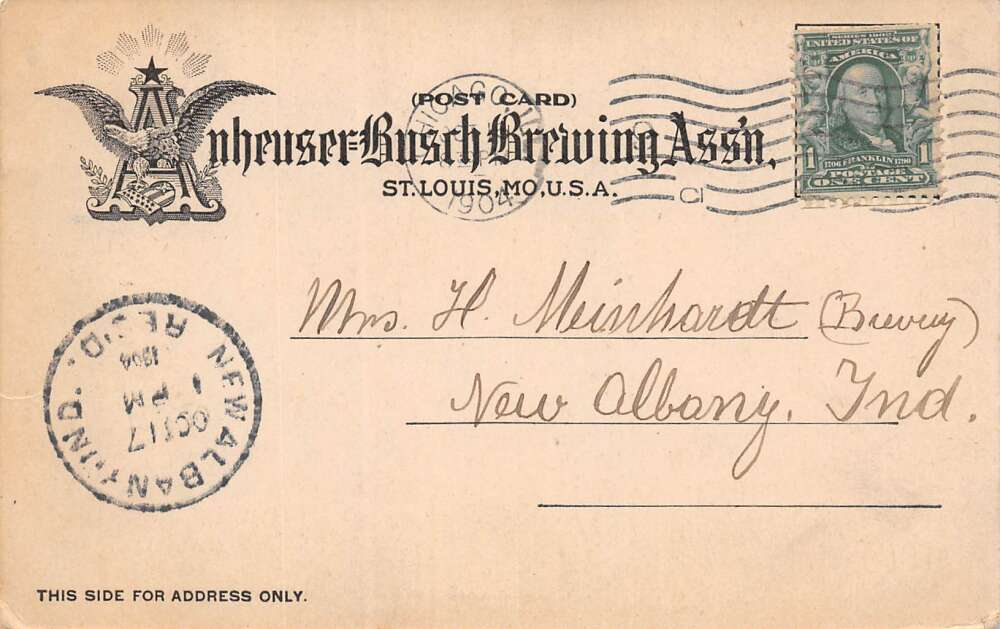 (POST CARD)
Anheuser-Busch Brewing Ass'n,
ST. LOUIS, MO., U.S.A.
CHICAGO, ILL.
1904
C1
SERIES 1902
UNITED STATES OF
AMERICA
1 1706 FRANKLIN 1790 1
POSTAGE
ONE CENT
Mrs. H. Meinhardt (Brewery)
New Albany, Ind.
NEW ALBANY, IND.
OCT 17
1 PM
1904
REC'D.
THIS SIDE FOR ADDRESS ONLY.